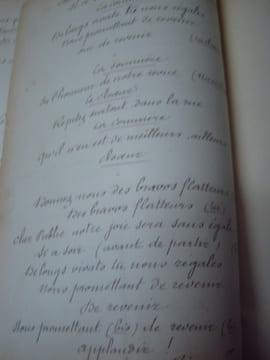 De longs vivats tu nous régales
Nous promettant de revenir
de revenir
La Commère
De l'honneur de notre revue
Le Choeur
Répétez surtout dans la rue
La Commère
qu'il n'en est de meilleurs ailleurs
Choeur
Donnez-nous des bravos flatteurs
Des bravos flatteurs (bis)
cher Public notre joie sera sans égale
Si a soir (avant de partir)
De longs vivats tu nous régales
Nous promettant de revenir
De revenir
Nous promettant (bis) de revenir (bis)
applaudir !